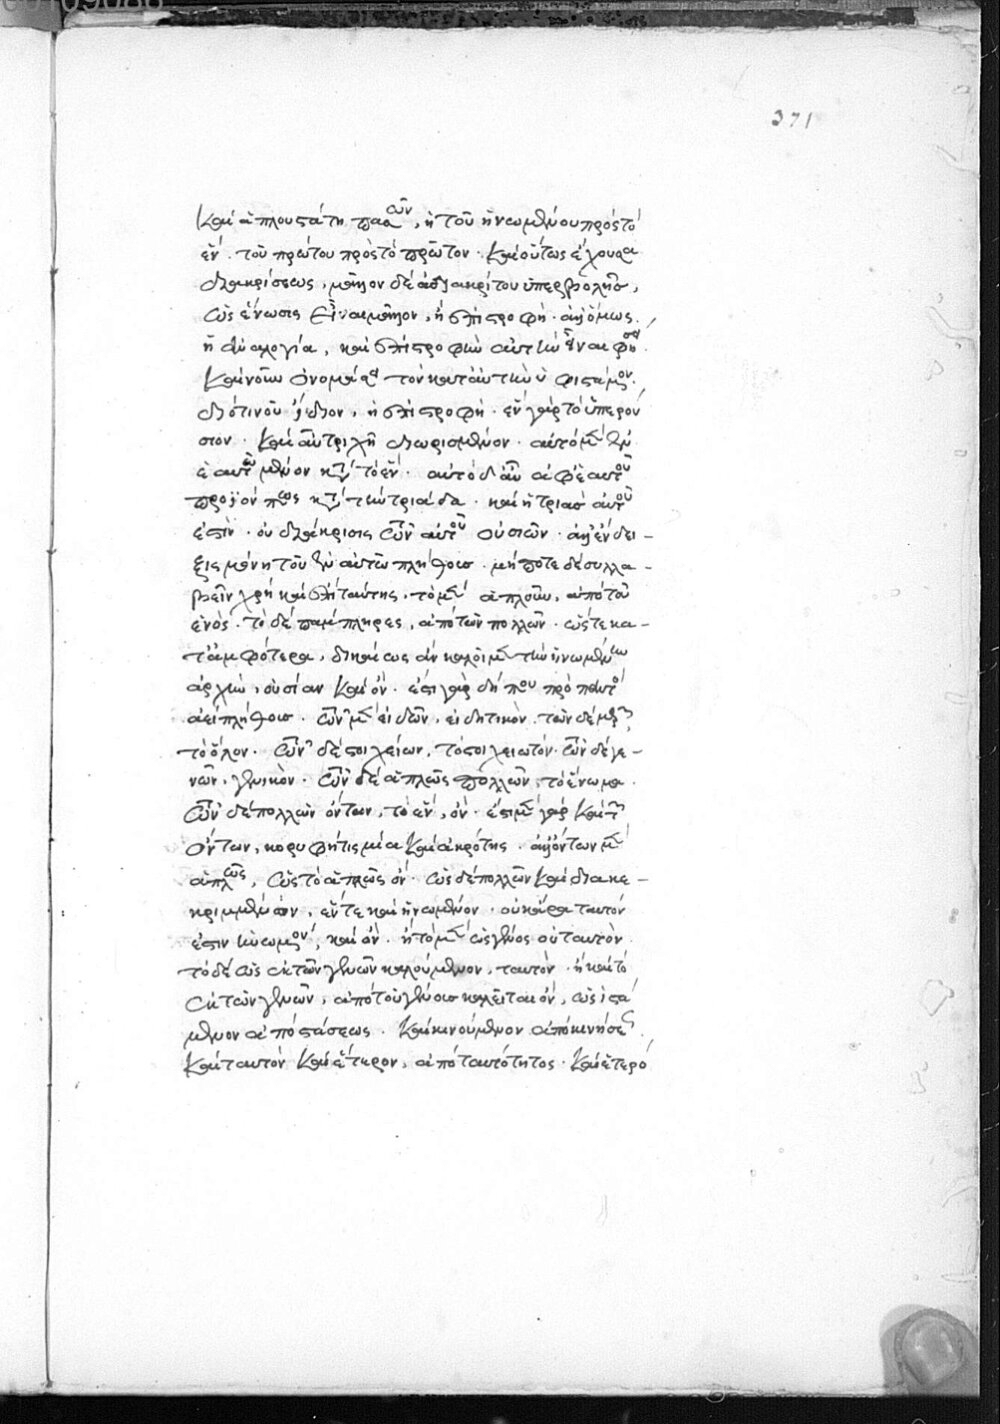 371
καὶ ἁπλουστάτη πασῶν, ἡ τοῦ ἡνωμένου πρὸς τὸ
ἕν. τοῦ πρώτου πρὸς τὸ πρῶτον. καὶ οὕτως ἔχουσα
διακρίσεως, μᾶλλον δὲ ἀδιακρίτου ὑπερβολῆς,
ὡς ἕνωσις εἶναι μᾶλλον, ἢ ἐπιστροφή. ἀλλ' ὅμως
ἡ ἀναλογία, καὶ ἐπιστροφὴν αὐτὴν εἶναι φησί.
καὶ νοῦν ὀνομάσαι τὸν κατ' αὐτὴν ὑφιστάμενον.
διότι νοῦ ἴδιον, ἡ ἐπιστροφή. ἓν γὰρ τὸ ὑπερού
σιον. καὶ αὖ τριχῇ διωρισμένον. αὐτὸ μὲν ἐν
ἑαυτῷ μένον κατὰ τὸ ἕν. αὐτὸ δ' αὖ ἀφ' ἑαυτοῦ
προϊόν πως κατὰ τὴν τριάδα. καὶ ἡ τριὰς αὐτοῦ
ἐστὶν. οὐ διάκρισις τῶν αὐτοῦ οὐσιῶν. ἀλλ' ἔνδει-
ξις μόνη τοῦ ἐν αὐτῷ πλήθους. μήποτε δὲ συλλα-
βεῖν χρὴ καὶ ἐπὶ ταύτης. τὸ μὲν ἁπλοῦν, ἀπὸ τοῦ
ἑνός. τὸ δὲ παμπληρες, ἀπὸ τῶν πολλῶν. ὥστε κα-
τ' ἀμφότερα, δικαίως ἂν καλοῖμεν τὴν ἡνωμένην
ἀρχὴν, οὐσίαν καὶ ὄν. ἔστι γὰρ δήπου πρὸ παντὸς
ἀεὶ πλήθους. τῶν μὲν εἰδῶν, εἰδητικὸν. τῶν δὲ μερῶν
τὸ ὅλον. τῶν δὲ στοιχείων, τὸ στοιχειωτόν. τῶν δὲ γε-
νῶν, γενικὸν. τῶν δὲ ἁπλῶς πολλῶν, τὸ ἕνωμα.
τῶν δὲ πολλῶν ὄντων, τὸ ἓν, ὄν. ἔστι μὲν γὰρ καὶ τῶν
ὄντων, κορυφή τις μία καὶ ἀκρότης. ἀλλ' ὄντων μὲν
ἁπλῶς, ὡς τὸ ἁπλῶς ὄν. ὡς δὲ πολλῶν καὶ διακε-
κριμμένων, ἕν τε καὶ ἡνωμένον. οὐκ ἄρα ταυτόν
ἐστιν ἡνωμένον, καὶ ὄν. ἢ τὸ μὲν ὡς γένος οὐ ταυτὸν.
τὸ δὲ ὡς ἐκ τῶν γενῶν καλούμενον, ταυτὸν. ἢ καὶ τὸ
ἐκ τῶν γενῶν, ἀπὸ τοῦ γένους καλεῖται ὄν, ὡς ἱστά
μενον ἀπὸ στάσεως. καὶ κινούμενον ἀπὸ κινήσεως.
καὶ ταυτὸν καὶ ἕτερον, ἀπὸ ταυτότητος. καὶ ἑτερό